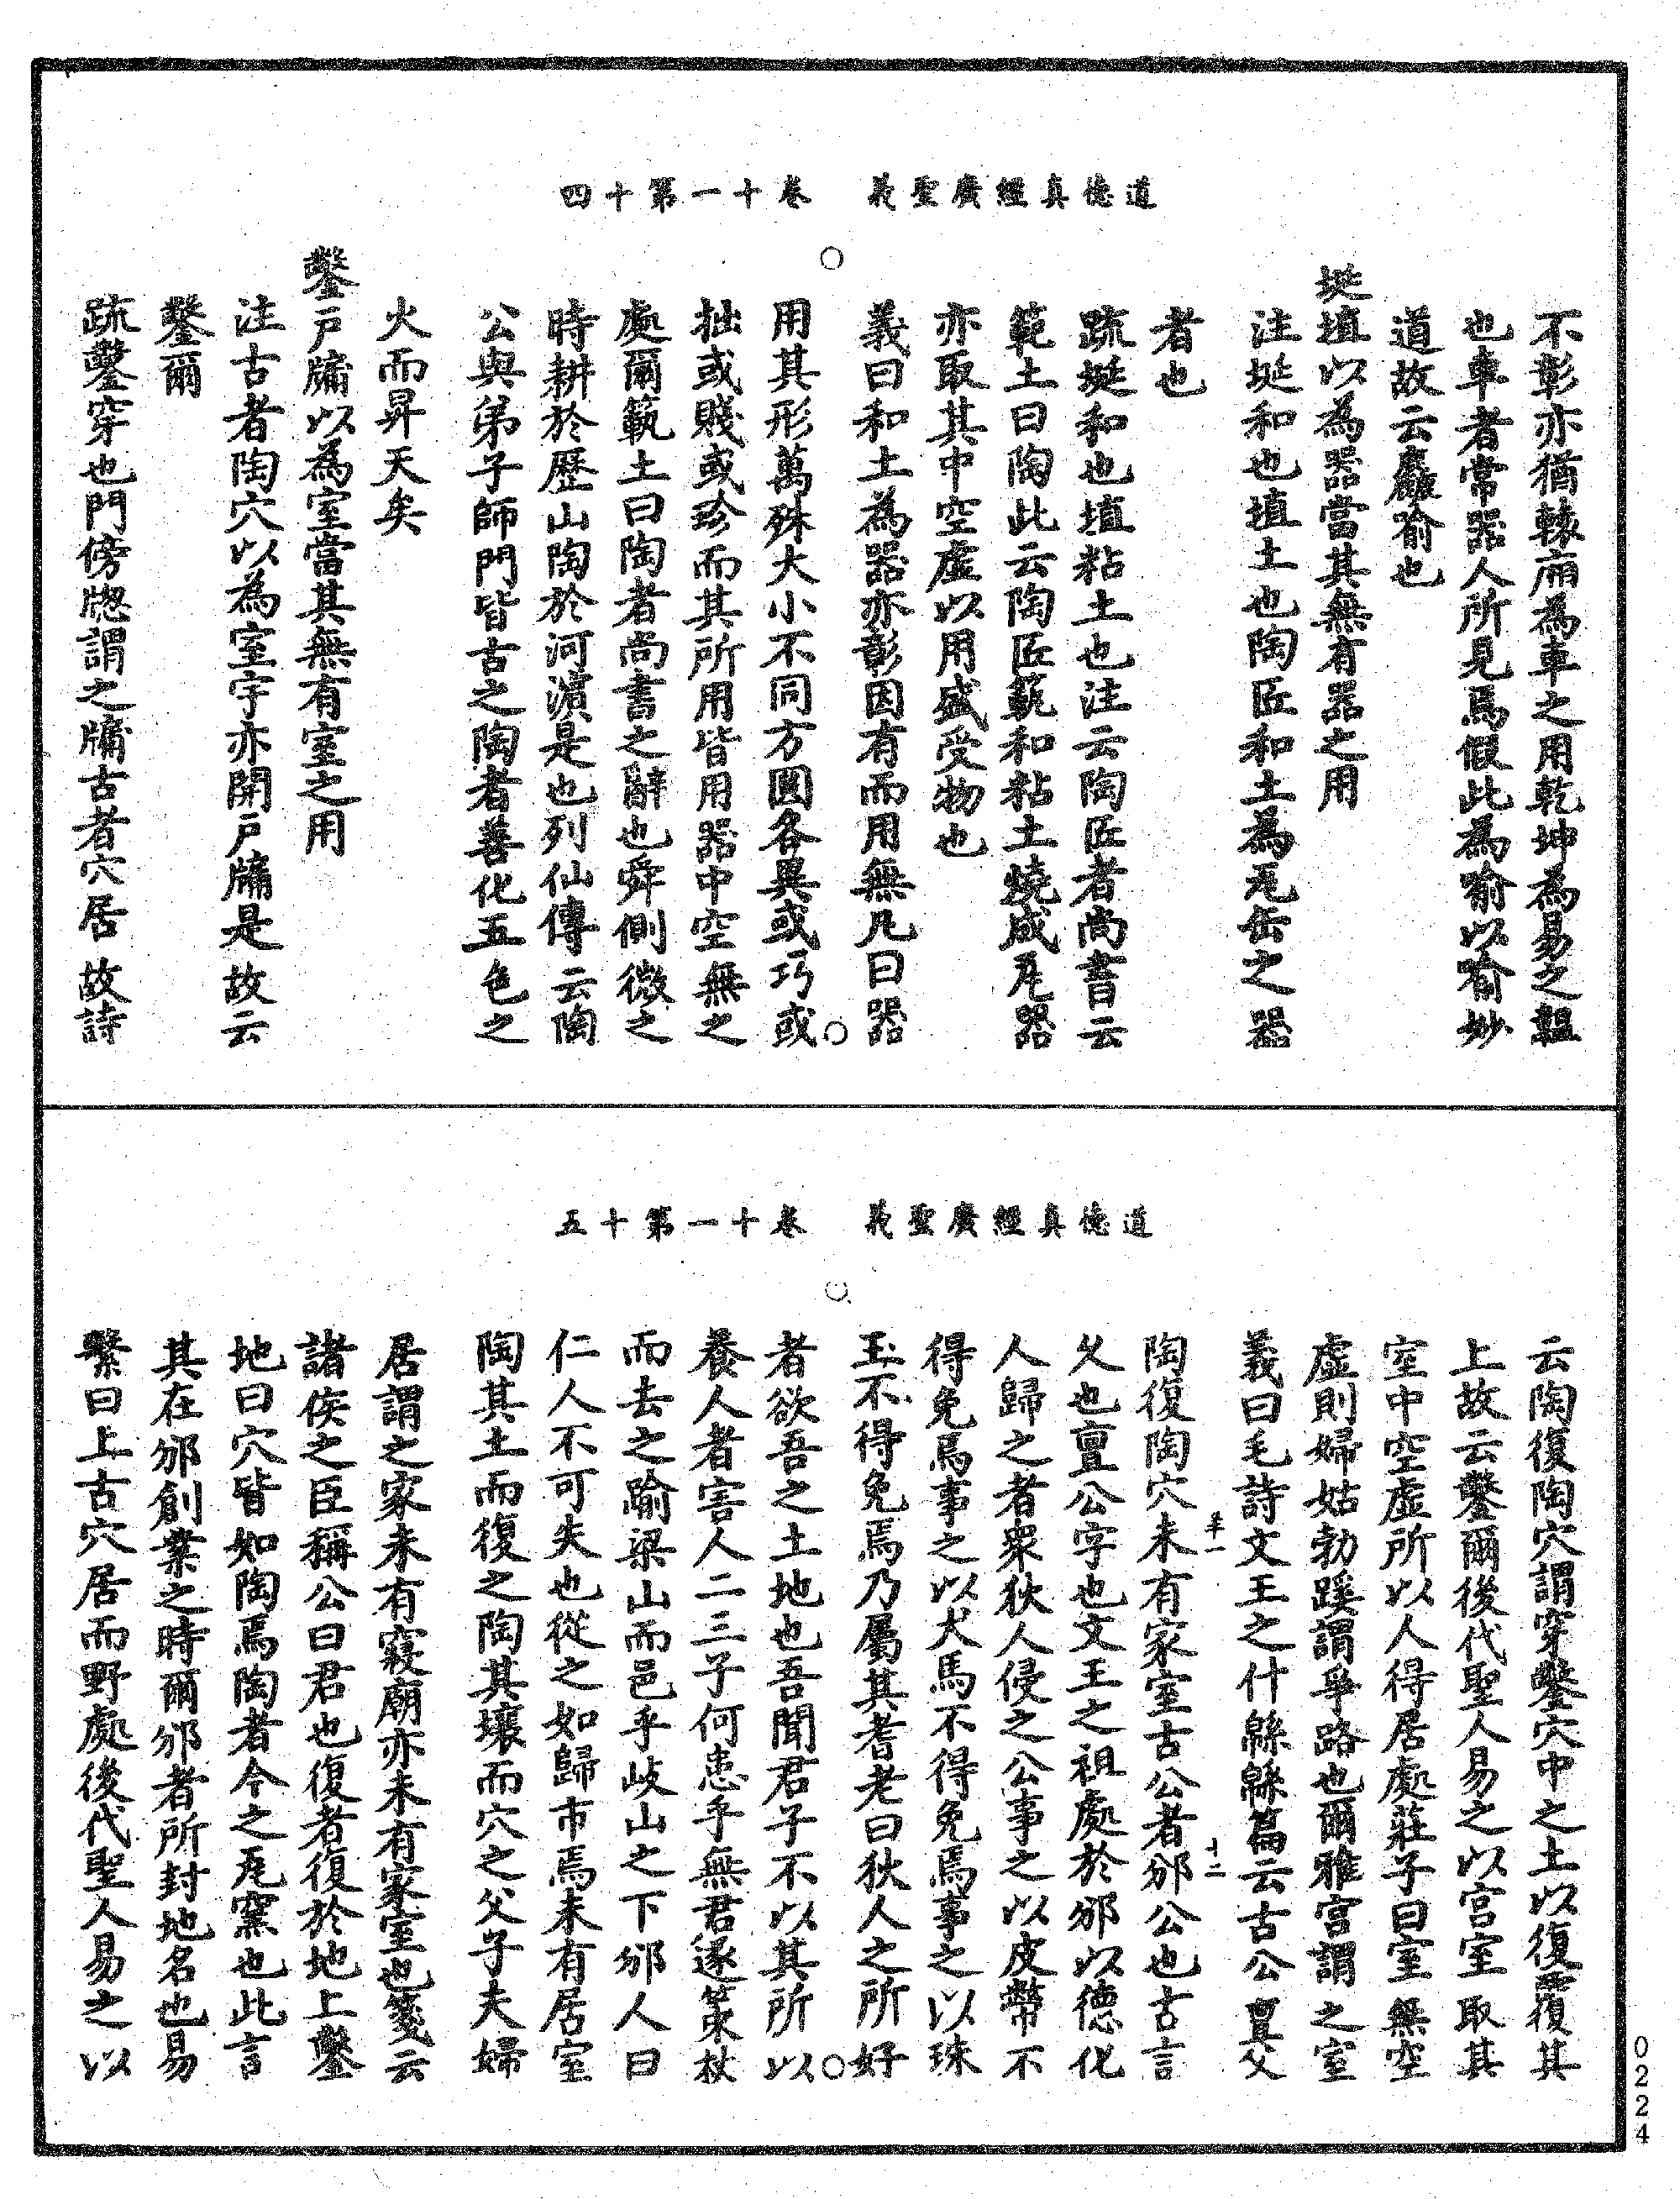 道德真經廣聖義　卷十一第十四
不彰亦猶轅廂為車之用乾坤為易之韞
也車者常器人所見焉假此為喻以喻妙
道故云麤喻也
埏埴以為器當其無有器之用
注埏和也埴土也陶匠和土為瓦缶之器
者也
疏埏和也埴粘土也注云陶匠者尚書云
範土曰陶此云陶匠範和粘土燒成瓦器
亦取其中空虛以用盛受物也
義曰和土為器亦彰因有而用無凡曰器
用其形萬殊大小不同方圓各異或巧或
拙或賤或珍而其所用皆用器中空無之
處爾範土曰陶者尚書之辭也舜側微之
時耕於歷山陶於河濱是也列仙傳云陶
公與弟子師門皆古之陶者善化五色之
火而昇天矣
鑿戶牖以為室當其無有室之用
注古者陶穴以為室宇亦開戶牖是故云
鑿爾
疏鑿穿也門傍牎謂之牖古者穴居故詩
道德真經廣聖義　卷十一第十五
云陶復陶穴謂穿鑿穴中之土以復覆其
上故云鑿爾後代聖人易之以宮室取其
室中空虛所以人得居處莊子曰室無空
虛則婦姑勃蹊謂爭路也爾雅宮謂之室
義曰毛詩文王之什緜緜篇云古公亶父
陶復陶穴未有家室古公者邠公也古言
久也亶公字也文王之祖處於邠以德化
人歸之者衆狄人侵之公事之以皮幣不
得免焉事之以犬馬不得免焉事之以珠
玉不得免焉乃屬其耆老曰狄人之所好
者欲吾之土地也吾聞君子不以其所以
養人者害人二三子何患乎無君遂策杖
而去之踰梁山而邑乎岐山之下邠人曰
仁人不可失也從之如歸市焉未有居室
陶其土而復之陶其壤而穴之父子夫婦
居謂之家未有寢廟亦未有家室也箋云
諸侯之臣稱公曰君也復者復於地上鑿
地曰穴皆如陶焉陶者今之瓦窯也此言
其在邠創業之時爾邠者所封地名也易
繫曰上古穴居而野處後代聖人易之以
0224